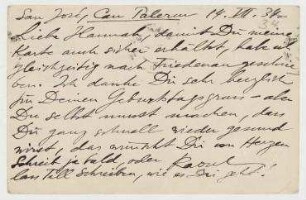 San José, Can Palerm 14. VII. 34.
Liebe Hannah, damit Du meine
Karte auch sicher erhältst, hab ich
gleichzeitig nach Friedenau geschrie-
ben. Ich danke Dir sehr herzlich
für Deinen Geburtstagsgruss – aber
Du selbst musst machen, dass
Du ganz schnell wieder gesund
wirst, das wünscht Dir von Herzen
Schreib ja bald, oder Raoul
lass Till schreiben, wie es Dir geht!